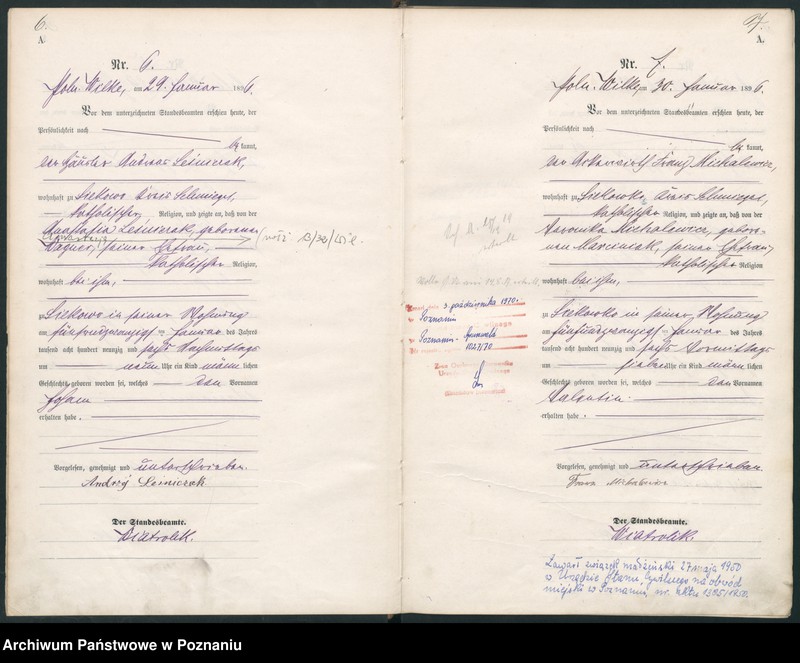 6.
A
Nr. 6.
Poln. Wilke, am 29. Januar 1896.
Vor dem unterzeichneten Standesbeamten erschien heute, der
Persönlichkeit nach
be kannt,
der Häusler Andreas Leśniczak,
wohnhaft zu Siekowo Kreis Schmiegel,
katholischer Religion, und zeigte an, daß von der
Leśniczak, geborenen
Wagner, seiner Ehefrau,
katholischer Religion,
wohnhaft bei ihm,
zu Siekowo in seiner Wohnung
am fünfundzwanzigsten Januar des Jahres
tausend acht hundert neunzig und sechs Nachmittags
um neun Uhr ein Kind männlichen
Geschlechts geboren worden sei, welches den Vornamen
Johann
erhalten habe.
Vorgelesen, genehmigt und unterschrieben.
Andrzej Leśniczak
Der Standesbeamte.
Wiatrolik.
7.
A.
Nr. 7.
Poln. Wilke, am 30. Januar 1896.
Vor dem unterzeichneten Standesbeamten erschien heute, der
Persönlichkeit nach
be kannt,
der Ackerwirth Franz Michalewicz,
wohnhaft zu Siekowko, Kreis Schmiegel,
katholischer Religion, und zeigte an, daß von der
Michalewicz, gebore-
nen Marciniak, seiner Ehefrau,
katholischer Religion
wohnhaft bei ihm,
zu Siekowko in seiner Wohnung
am fünfundzwanzigsten Januar des Jahres
tausend acht hundert neunzig und sechs Vormittags
um sieben Uhr ein Kind männlichen
Geschlechts geboren worden sei, welches den Vornamen
Valentin
erhalten habe.
Vorgelesen, genehmigt und unterschrieben.
Franz Michalewicz
Der Standesbeamte.
Wiatrolik.
3. października 1970.
Poznaniu
Poznaniu -
1027/70
Zawarł związek małżeński 27 maja 1950
w Urzędzie Stanu Cywilnego na obwód
miejski w Poznaniu nr. aktu
Archiwum Państwowe w Poznaniu